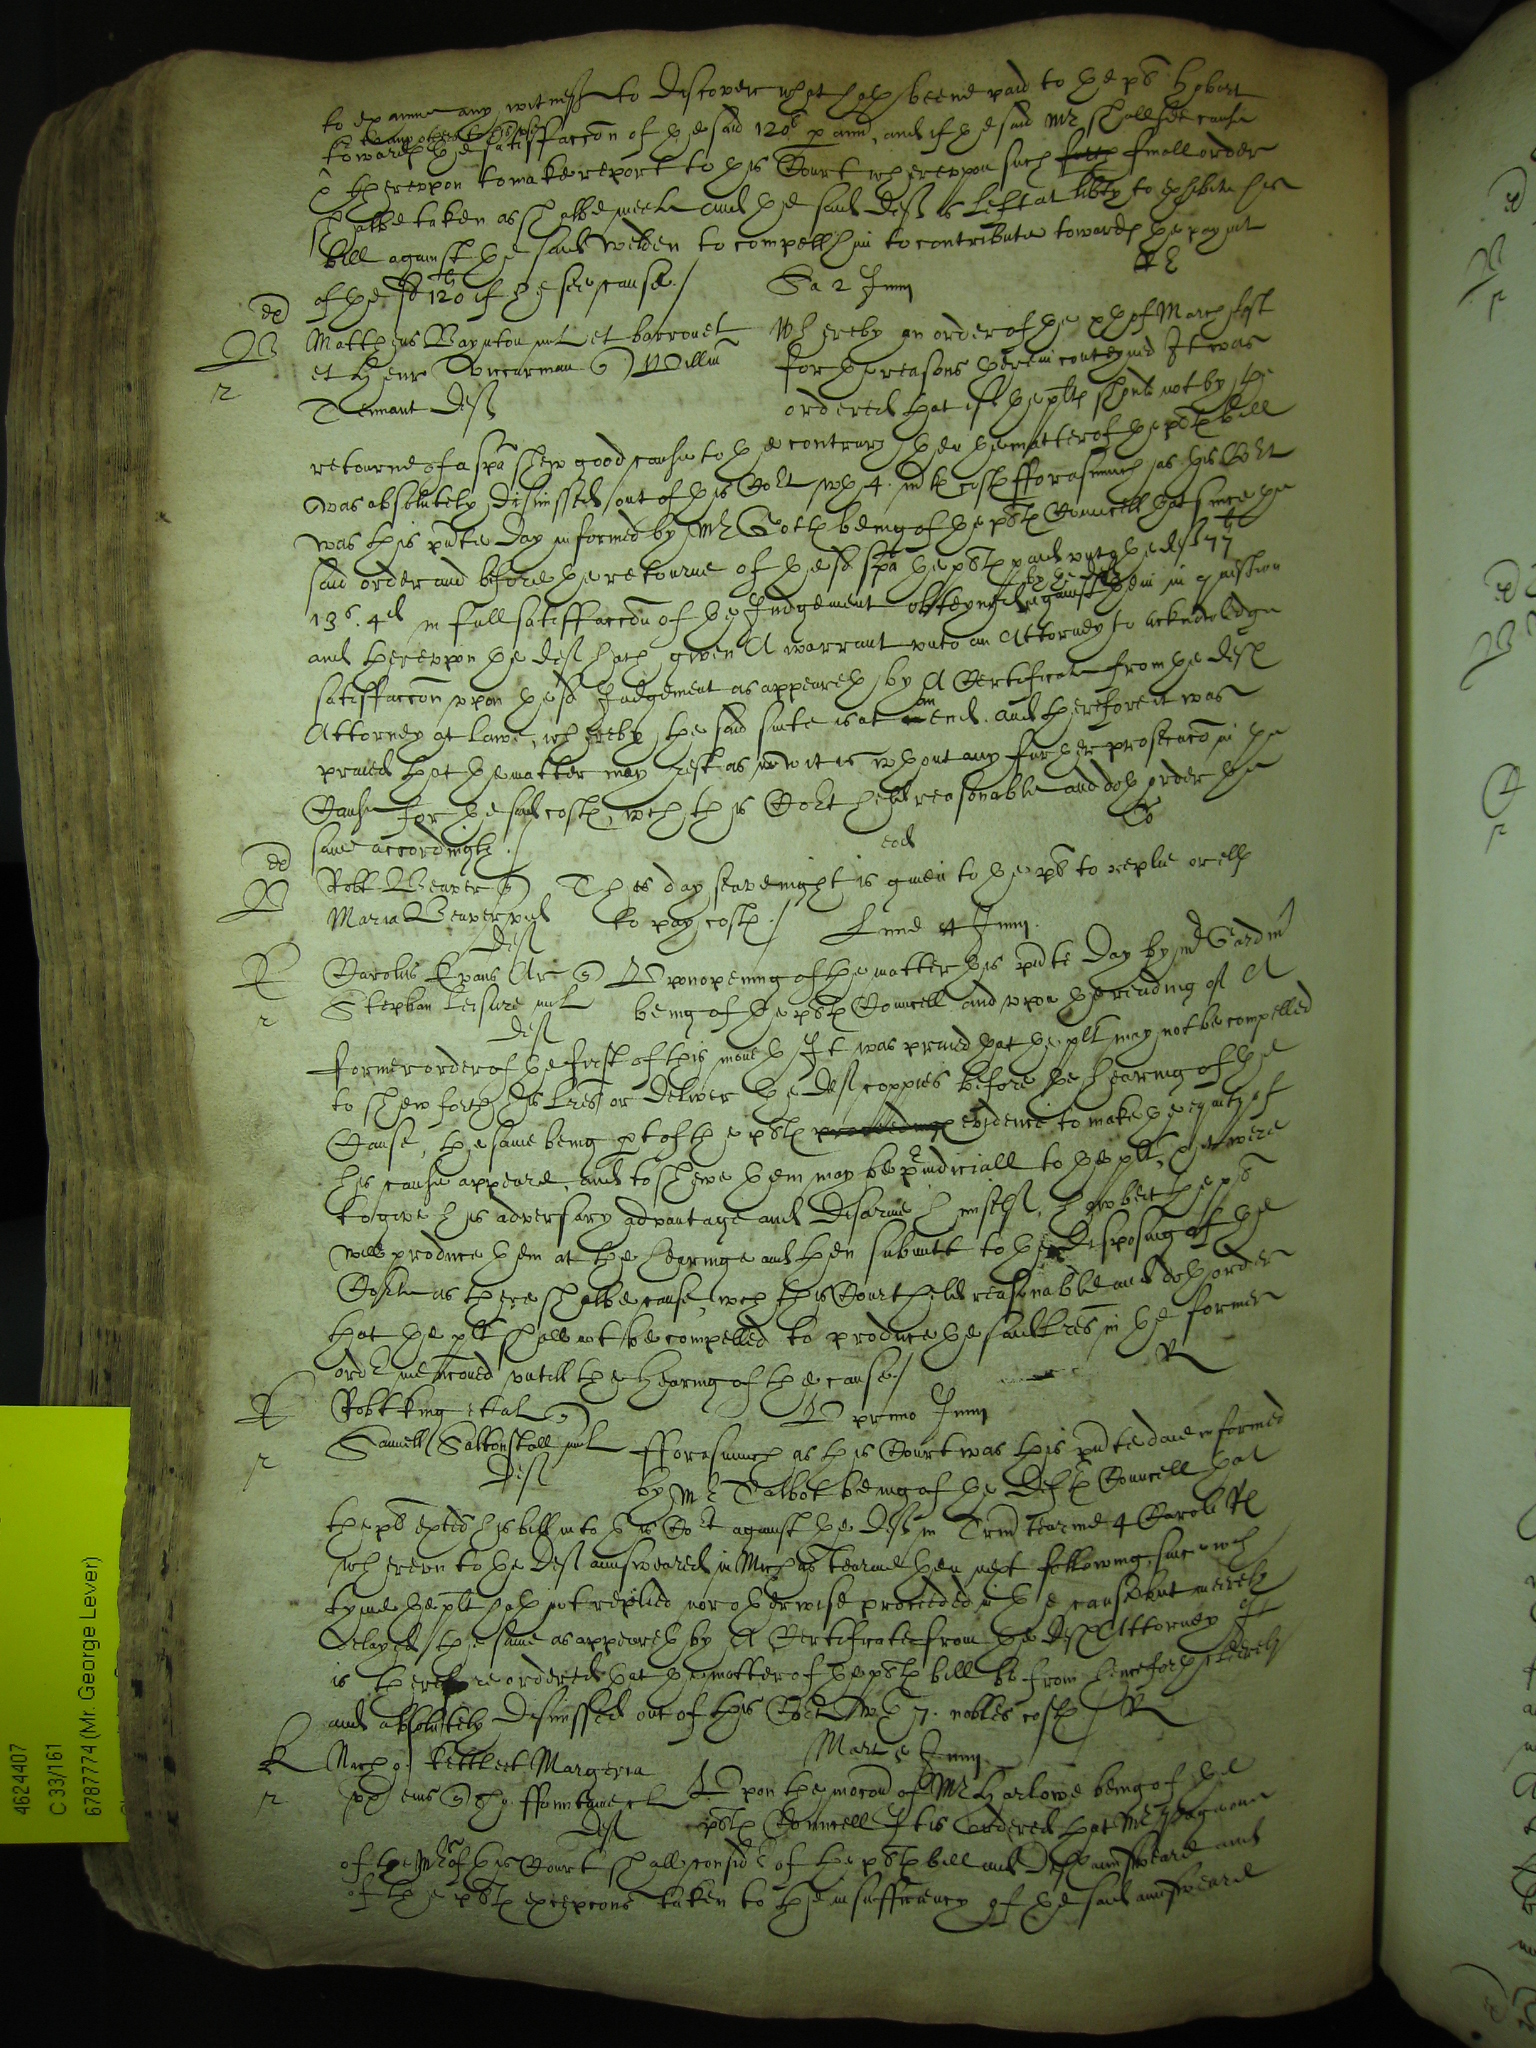 to examine any witnesse to discover what hath beene paid to the pl Hobart
towards the satisfaccon of the said 120l p ann, and if the said Mr shall see cause
thereuppon to make report to this Court whereuppon such finall order
shalbe taken as shalbe meete and the said Deft is left at libty to exhibite his
bill against the said Welden to compell him to contribute towards the paymt
of the sd 120l if he see cause /
Sa 2 Junii
dp
B
r
Mattheus Baynton mil et barronet
et Henr Viccarman Willm
Tennant Deft
Whereby an order of the xth of March last
for the reasons therein conteyned It was
ordered that if the plts should not by the
retourne of a spa shew good cause to the contrary then the matter of the plts bill
was absolutely dismissed out of this Cort wth 4 mks costs fforasmuch as this Cort
was this pnte day informed by Mr being of the plts Councell that since the
said order and before the retourne of the sd spa the plts paid unto the deft 77l
13s. 4d in full satisffaccon of the Judgement obteyned against them in question
and thereuppon the deft hath given A warrant unto an Attorney to acknowledge
satisffaccon uppon the sd Judgement as appeareth by A Certificate from the defts
Attorney at Lawe, whereby the said suite is at an end. and therefore it was
praied that the matter may rest as now it is wthout any further prosecucon in the
Cause for the said costs, wch this Cort held reasonable and doth order the
same accordingly /
dp
B
Robt Beaver
Maria Beaver vid
Deft
eod
This day seavenight is given to the pl to replie or ells
to pay costs /
Lune 4 Junii
E
r
Carolus Evans Ar
Stephan Leisure mil
Deft
Uppon opening of the matter this pnte day by Mr Gardinr
being of the plts Councell and uppon the reading of A
former order of the first of this moneth It was praied that the plt may not be compelled
to shew forth his lres or deliver the deft coppies before the hearing of the
Cause, the same being pt of the plts evidence to make the equity of
his cause appeare, and to shewe them may be preiudiciall to the plt, were
to give his adversary advantage and disarme himselfe, howbeit the pl
will produce them at the hearinge and then submitt to the disposing of the
Corte as there shalbe cause, wch this Court held reasonable and doth order
that the plt shall not be compelled to produce the said lres in the former
ordr menconed untill the hearing of the cause /
R
K
r
Robt King et al
Samuell Saltonstall mil
Deft
V primo Junii
fforasmuch as this Court was this pnte daie informed
by Mr Talbot being of the Defts Councell that
the pl exted his bill into this Cort against the Deft in Trin tearme 4 Caroli Rs
whereunto the Deft aunsweared in Michas tearme then next following, since wch
tyme the plt hath not replied nor otherwise proceeded in the cause but meerely
delayed the same as appeareth by A Certificate from the Defts Attorney It
is therefore ordered that the matter of the plts bill be from henceforth cleerely
and absolutely dismissed out of this Cort wth 7 nobles costs / R
K
r
Mart 5 Junii
Nich Kettle et Margeria
ux eius ffountaine
Deft
Uppon the mocon of Mr Harlowe being of the
plts Councell It is ordered that Mr Page one
of the Mrs of this Court shall considr of the plts bill and Defts aunsweare and
of the plts excepcons taken to the insufficiency of the said aunsweare
4624407
C 33/161
6787774 (Mr. George Lever)